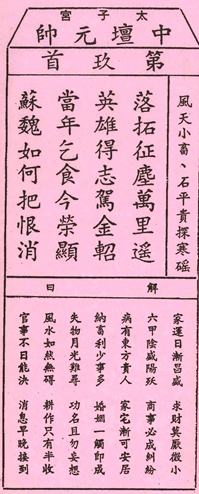 太子宮
中壇元帥
第玖首
風天小畜、石平貴探寒磘
落拓征塵萬里遙
英雄得志駕金軺
當年乞食今榮顯
蘇魏如何把恨消
解曰
家運日漸昌盛 求財莫厭微小
六甲陰盛陽殀 商事必成糾紛
病有東方貴人 家宅漸可安居
納畜利少事多 婚姻一觸即成
失物月光難尋 功名且勿妄想
風水如然無碍 耕作只有半收
官事不日能決 消息早晚接到